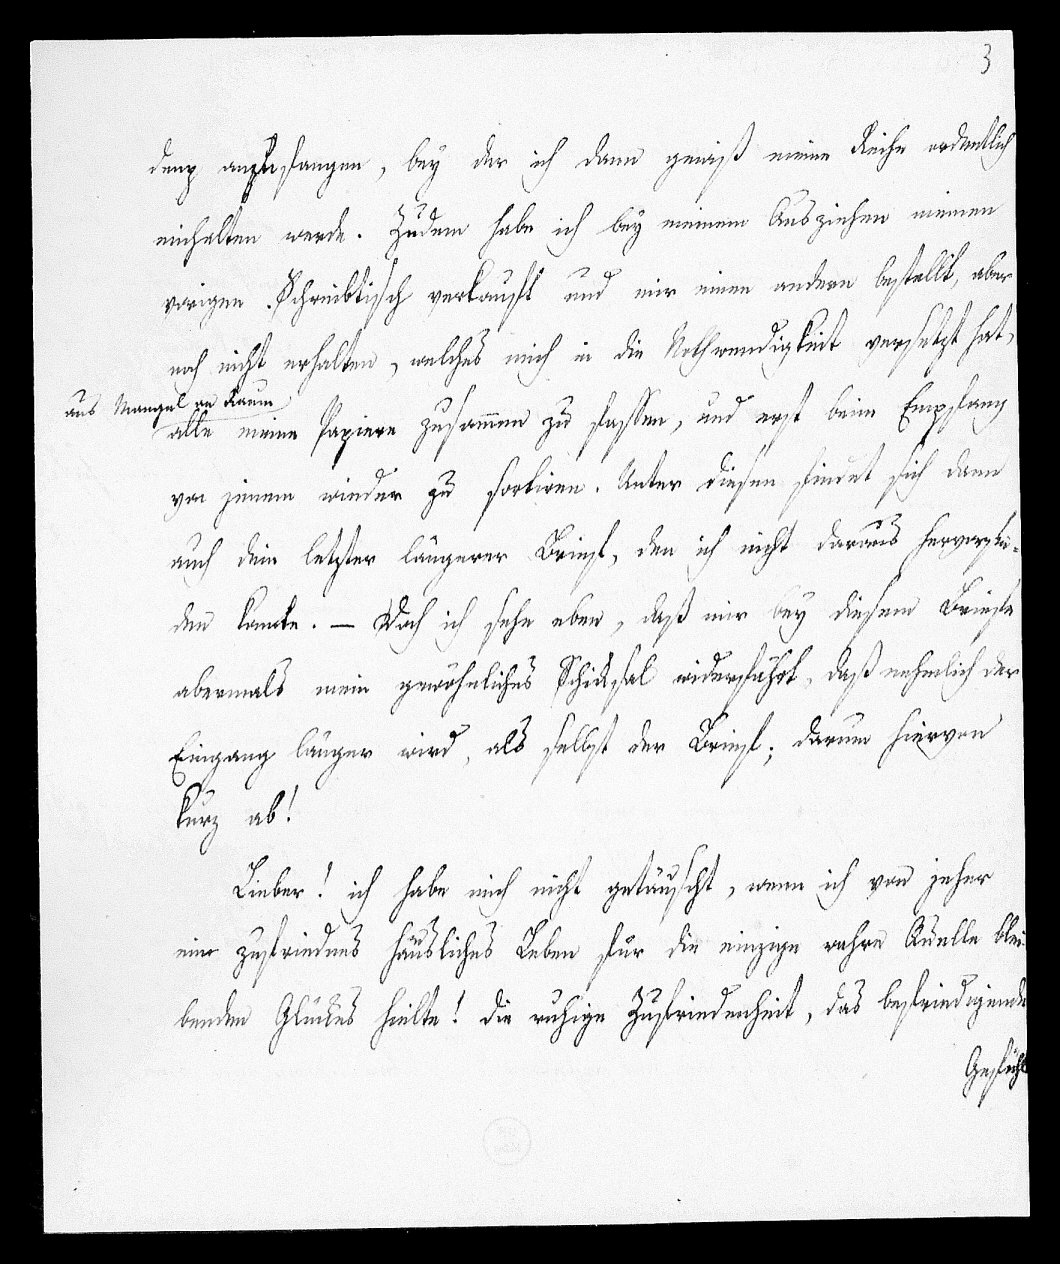 3
denz anzufangen, bey der ich dann gewiß meine Reihe ordentlich
einhalten werde. Zudem habe ich bey meinem Ausziehen meinen
vorigen Schreibtisch verkauft und mir einen andern bestellt, aber
noch nicht erhalten, welches mich in die Nothwendigkeit versetzt hat,
aus Mangel an Raum
alle meine Papiere zusam̅en zu fassen, und erst beim Empfang
von jenem wieder zu sortiren. Unter diesen findet sich dann
auch dein letzter längerer Brief, den ich nicht daraus hervorfin-
den konnte. — Doch ich sehe eben, daß mir bey diesem Briefe
abermals mein gewöhnliches Schicksal widerfährt, daß nehmlich der
Eingang länger wird, als selbst der Brief; darum hiervon
kurz ab!
Lieber! ich habe mich nicht getäuscht, wenn ich von jeher
ein zufriednes häusliches Leben für die einzige wahre Quelle blei-
benden Glückes hielte! die ruhige Zufriedenheit, das befriedigende
Gefühl